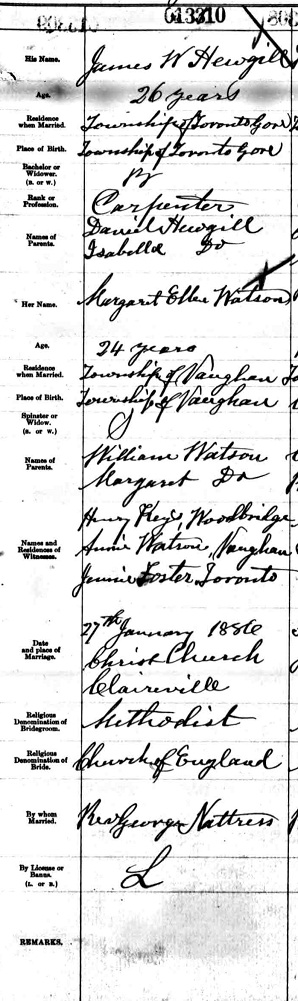 613310
His Name. James W Hewgill
Age. 26 years
Residence when Married. Township of Toronto Gore
Place of Birth. Township of Toronto Gore
Bachelor or Widower. (B. OR W.) B
Rank or Profession. Carpenter
Names of Parents. Daniel Hewgill
Isabella Do
Her Name. Margaret Ellen Watson
Age. 24 years
Residence when Married. Township of Vaughan
Place of Birth. Township of Vaughan
Spinster or Widow. (S. OR W.) S
Names of Parents. William Watson
Margaret Do
Names and Residences of Witnesses. Henry Keys, Woodbridge
Annie Watson, Vaughan
Jennie Foster Toronto
Date and place of Marriage. 27th January 1886
Christ Church
Claireville
Religious Denomination of Bridegroom. Methodist
Religious Denomination of Bride. Church of England
By whom Married. Rev George Nattress
By License or Banns. (L. OR B.) L
REMARKS.